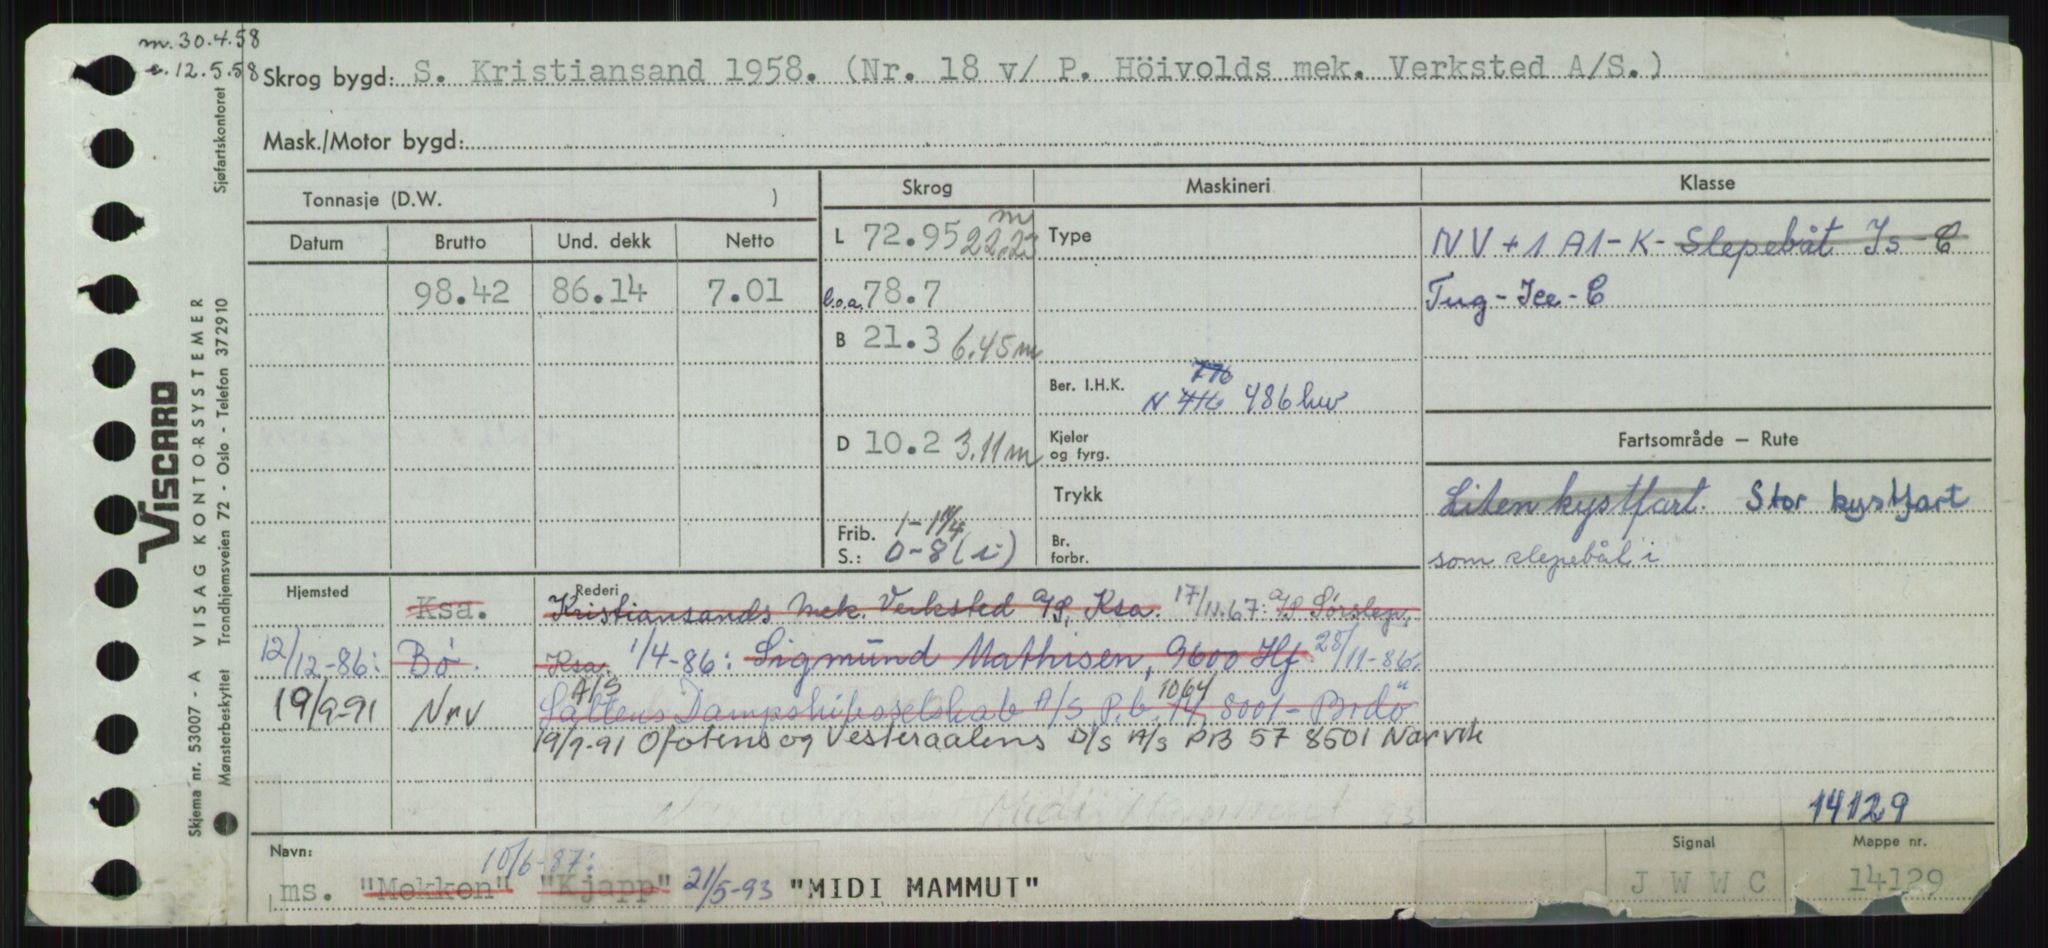 m. 30.4.58
e. 12.5.58
Skrog bygd: S. Kristiansand 1958. (Nr. 18 v/ P. Höivolds mek. Verksted A/S.)
Mask./Motor bygd:
Sjøfartskontoret
Tonnasje (D.W. ) Skrog Maskineri Klasse
Datum Brutto Und. dekk Netto
98.42 86.14 7.01
L 72.95 22.23 m
l.o.a. 78.7
B 21.3 6.45 m
D 10.2 3.11 m
Frib. 1-1 1/4
S.: 0-8 (i)
Type
Ber. I.H.K. 776
N 416 486 hw
Kjeler og fyrg.
Trykk
Br. forbr.
NV + 1 A1 - K - Slepebåt Is - C
Tug - Ice - C
Fartsområde – Rute
Liten kystfart. Stor kystfart
som slepebåt i
Hjemsted Rederi
Ksa. Kristiansands Mek. Verksted a/s, Ksa. 17/11.67: a/s Sørslep,
12/12-86: Bö. Ksa. 1/4-86: Sigmund Mathisen, 9600 Hf. 28/11-86:
A/S 1064
19/9-91 Nrv Saltens Dampskibsselskab A/S, P.b. 14, 8001 - Bodö
19/9-91 Ofotens og Vesteraalens D/S A/S PB 57 8501 Narvik
Midi Mammut 93
14129
Navn: 10/6-87:
ms. "Mekken" "Kjapp" 21/5-93 "MIDI MAMMUT"
Signal
J W W C
Mappe nr.
14129
VISCARD
Skjema nr. 53007 - A VISAG KONTORSYSTEMER
Mønsterbeskyttet Trondhjemsveien 72 - Oslo - Telefon 372910